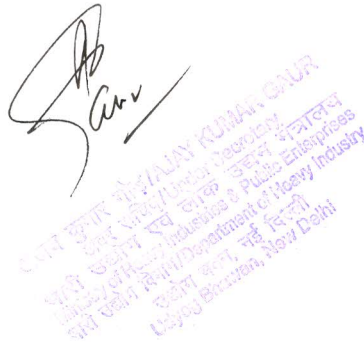 Gaur
अजय कुमार गौड़/AJAY KUMAR GAUR
अवर सचिव/Under Secretary
भारी उद्योग एवं लोक उद्यम मंत्रालय
Ministry of Heavy Industries & Public Enterprises
भारी उद्योग विभाग/Department of Heavy Industry
उद्योग भवन, नई दिल्ली
Udyog Bhawan, New Delhi